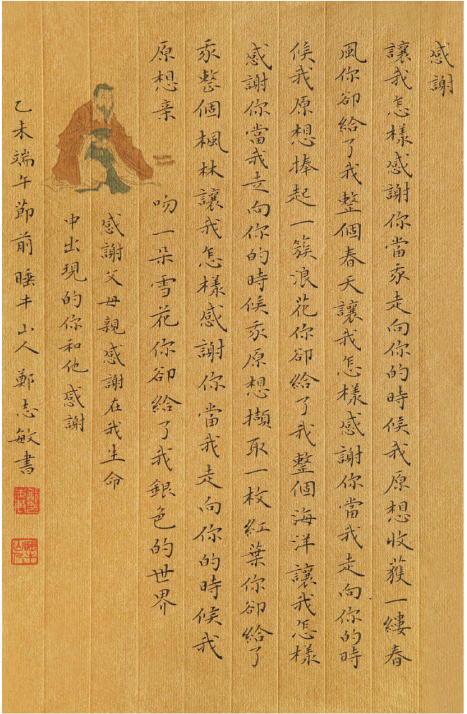 感謝
讓我怎樣感謝你當我走向你的時候我原想收獲一縷春
風你卻給了我整個春天讓我怎樣感謝你當我走向你的時
候我原想捧起一簇浪花你卻給了我整個海洋讓我怎樣
感謝你當我走向你的時候我原想擷取一枚紅葉你卻給了
我整個楓林讓我怎樣感謝你當我走向你的時候我
原想亲吻一朵雪花你卻給了我銀色的世界
感謝父母親感謝在我生命
中出現的你和他感謝
乙未端午節前睡牛山人鄭志敏書